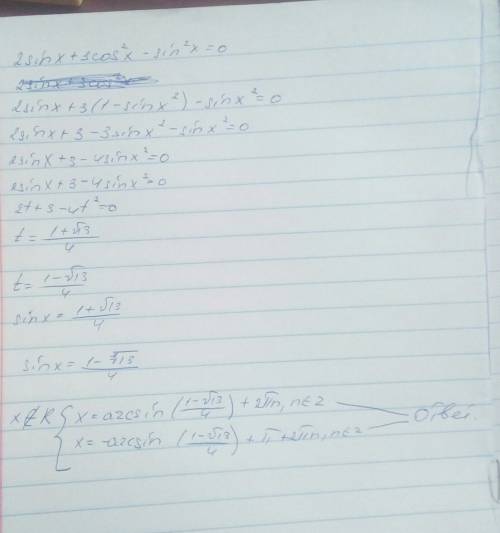 2sinx+3cos²x-sin²x=0
2sinx+3(1-sinx²)-sinx²=0
2sinx+3-3sinx²-sinx²=0
2sinx+3-4sinx²=0
2sinx+3-4sinx²=0
2t+3-4t²=0
t=(1+√13)/4
t=(1-√13)/4
sinx=(1+√13)/4
sinx=(1-√13)/4
x∉R { x=arcsin((1-√13)/4)+2πn, n∈Z
x=-arcsin((1-√13)/4)+π+2πn, n∈Z
Ответ.